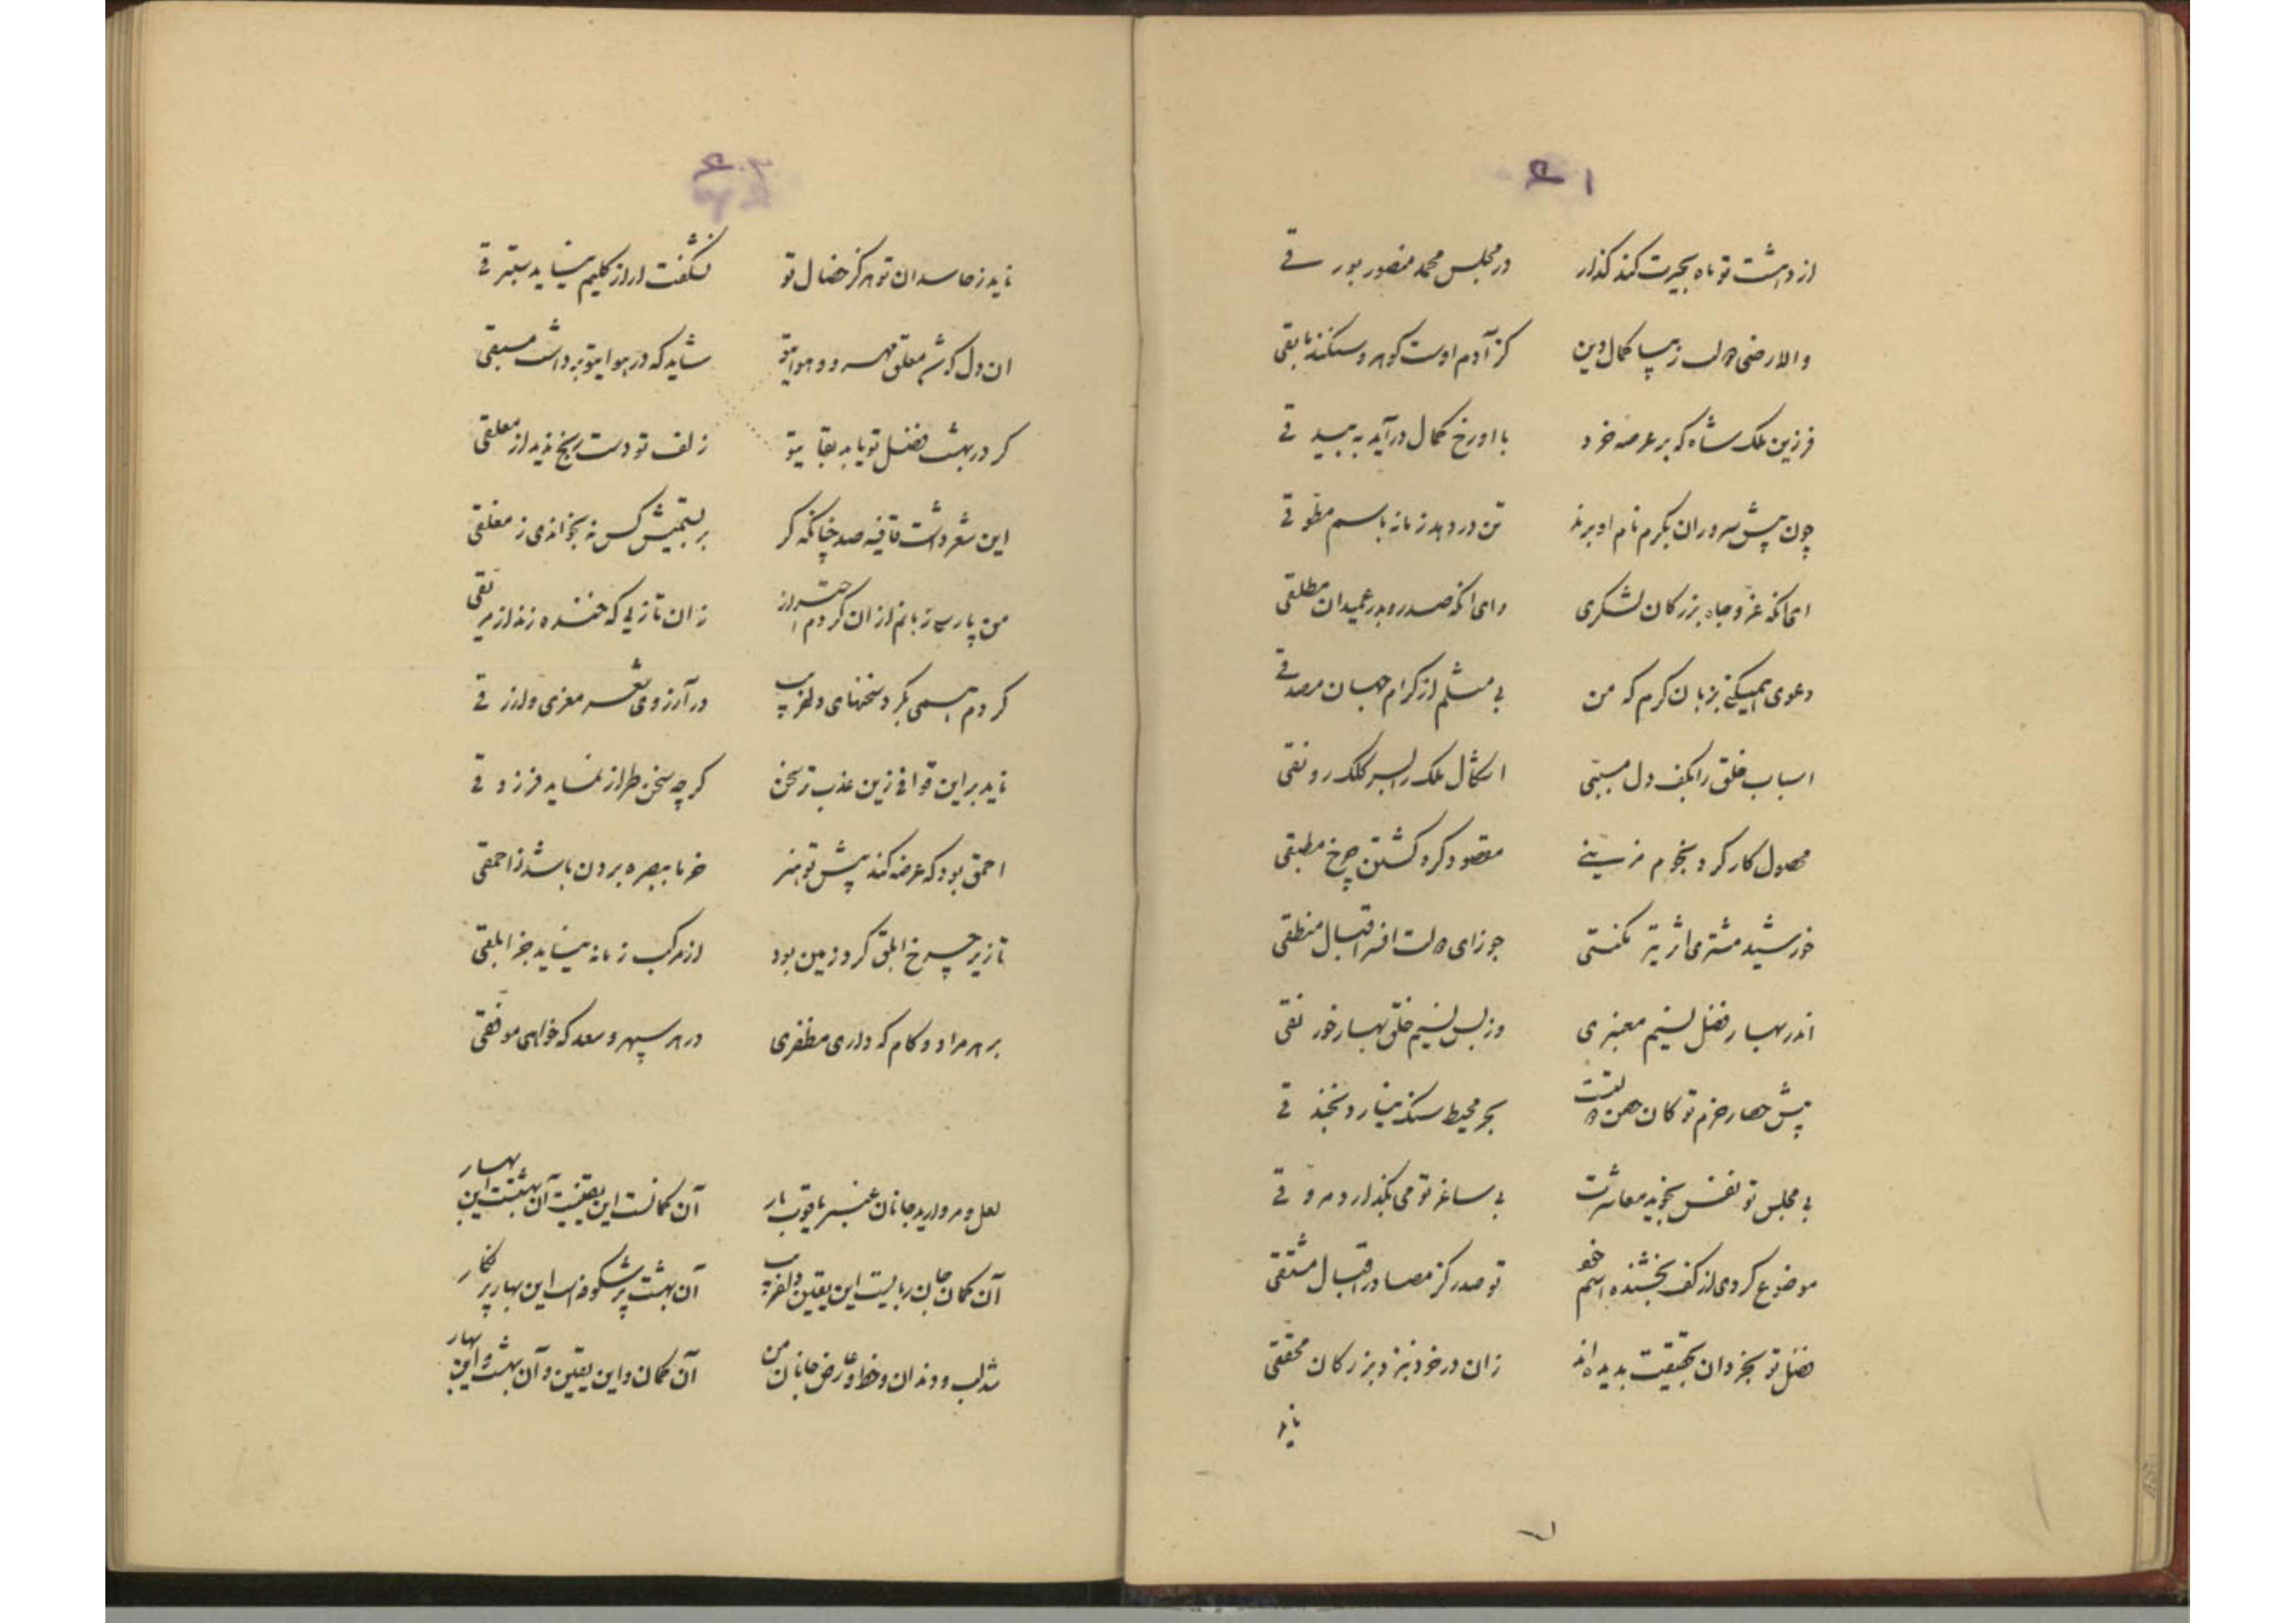 ۴۱
از دهشت تو ماه بحیرت کند گذار در مجلس محمد منصور بور قی
والا رضی زیبا کمال دین کز آدم اوست گوهر و
فرزین ملک شاه که بر عرصه خرد با او رخ کمال درآید به بیدقی
چون پیش سروران بکرم نام او برند تن در دهد زمانه باسم مطوقی
ای آنکه عز و جاه بزرگان لشکری وای آنکه صدر و بدر عمیدان مطلقی
دعوی همیکنی بزبان کرم که من بی مثلم از کرام جهان مصدقی
اسباب خلق را بکف دل مسببی اشکال ملک را بسر کلک رونقی
محصول کارکرد نجوم مزینی مقصود گرد گشتن چرخ مطبقی
خورشید مشتری اثر تیر مکنتی جوزای افسر اقبال منطقی
اندر بهار فضل نسیم معنبری وز بس نسیم خلق بهار خورنقی
پیش حصار حزم تو کان حصن بحر محیط سنگ نیارد بخندقی
بی مجلس تو نفس نجوید معاشرت بی ساغر تو می نگذارد مروقی
موضوع کردی از کف بخشنده اسم تو صدر کز مصادر اقبال مشتقی
فضل تو بخردان بحقیقت بدیده‌اند زان در خور نبرد بزرگان محققی
ناید
ناید ز حاسدان تو هرگز خصال تو نشگفت ار از گلیم نیاید ستبرقی
ان دل کش معلق مهر و هوای تو شاید که در هوای تو برداشت مسبقی
گر در بهشت فضل تو یابد بقای تو زلف تو دست
این شعر داشت قافیه صد چنانکه گر بر بستمیش کس نه بخواندی ز مغلقی
من پارسی زبانم از ان کردم احتراز زان تازیی که خنده زند از
کردم بسی بکر و سخنهای دلفریب در آرزوی شعر معزی و ازرقی
ناید براین قوافی زین عذب تر سخن گرچه سخن طراز نماید فرزدقی
احمق بود که عرضه کند پیش تو هنر خرما ببصره بردن باشد ز احمقی
تا زیر چرخ ابلق گرد زمین بود از مرکب زمانه نیاید جز ابلقی
بر هر مراد و کام که داری مظفری در هر سپهر و سعد که خواهی موفقی
لعل و مروارید جانان عنبر یاقوت بار آن گمانست این یقینست آن بهشتست این بهار
آن گمان جان ربایست این یقین دلفریب آن بهشت پر شکوفه است این بهار پر نگار
شد لب و دندان و خط و عارض جانان من آن گمان و این یقین و آن بهشت و این بهار